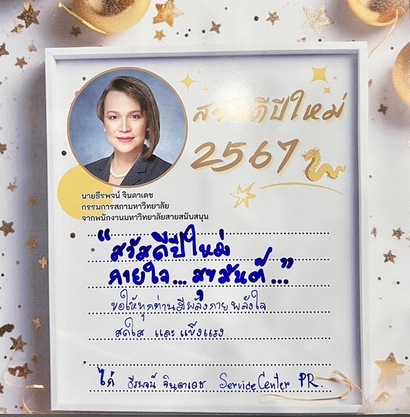 สวัสดีปีใหม่
2567
นายธีรพจน์ จินดาเดช
กรรมการสภามหาวิทยาลัย
จากพนักงานมหาวิทยาลัยสายสนับสนุน
"สวัสดีปีใหม่
กายใจ... สุขสันต์..."
ขอให้ทุกท่านมีพลังกาย พลังใจ
สดใส และ แข็งแรง
ธีรพจน์ จินดาเดช Service Center PR.